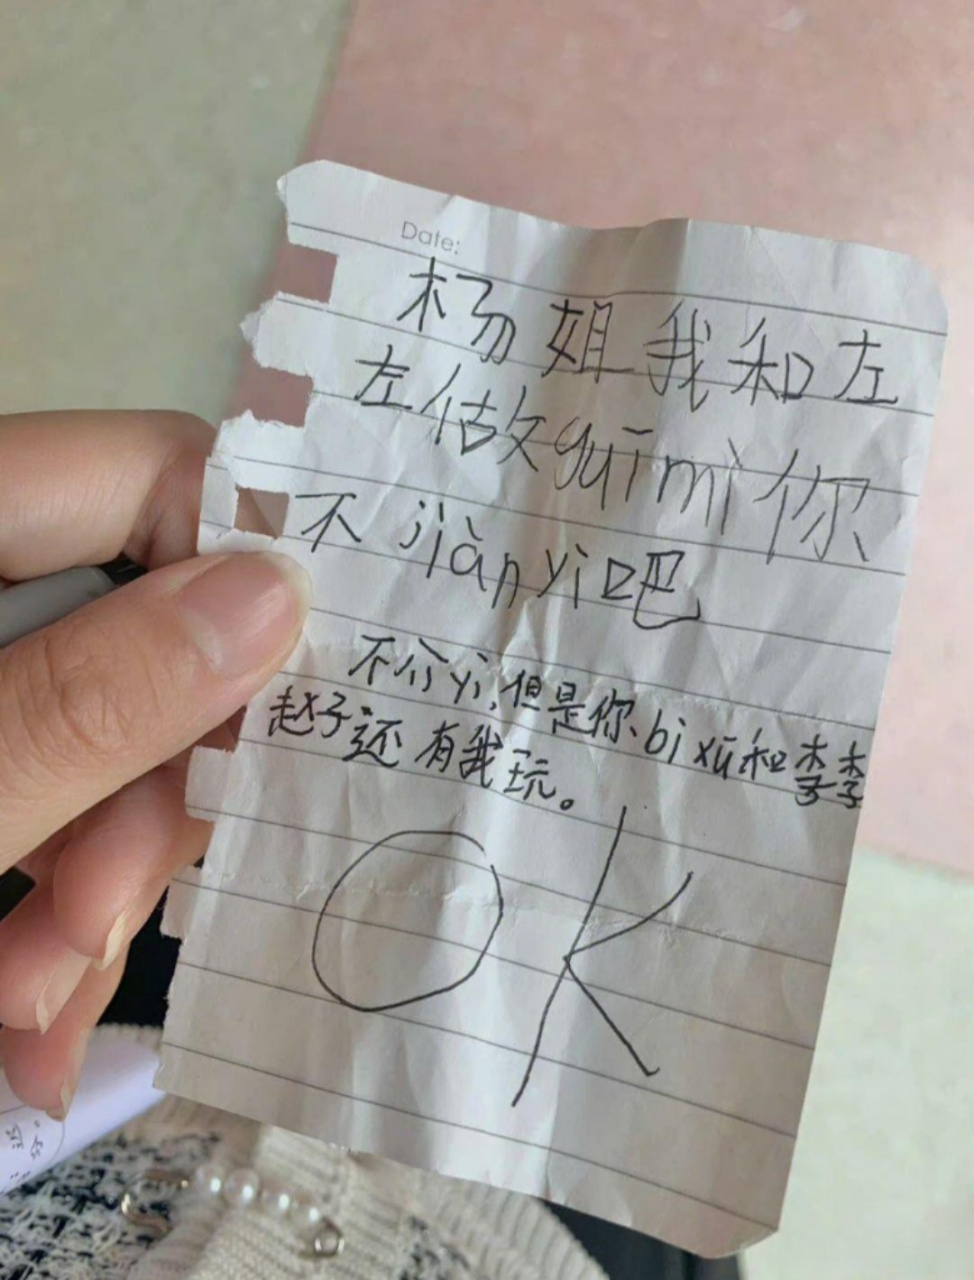 Date:
杨姐我和左
左做guī mì你
不jiàn yì吧
不介yì,但是你bì xū和李李
赵子还有我玩。
OK